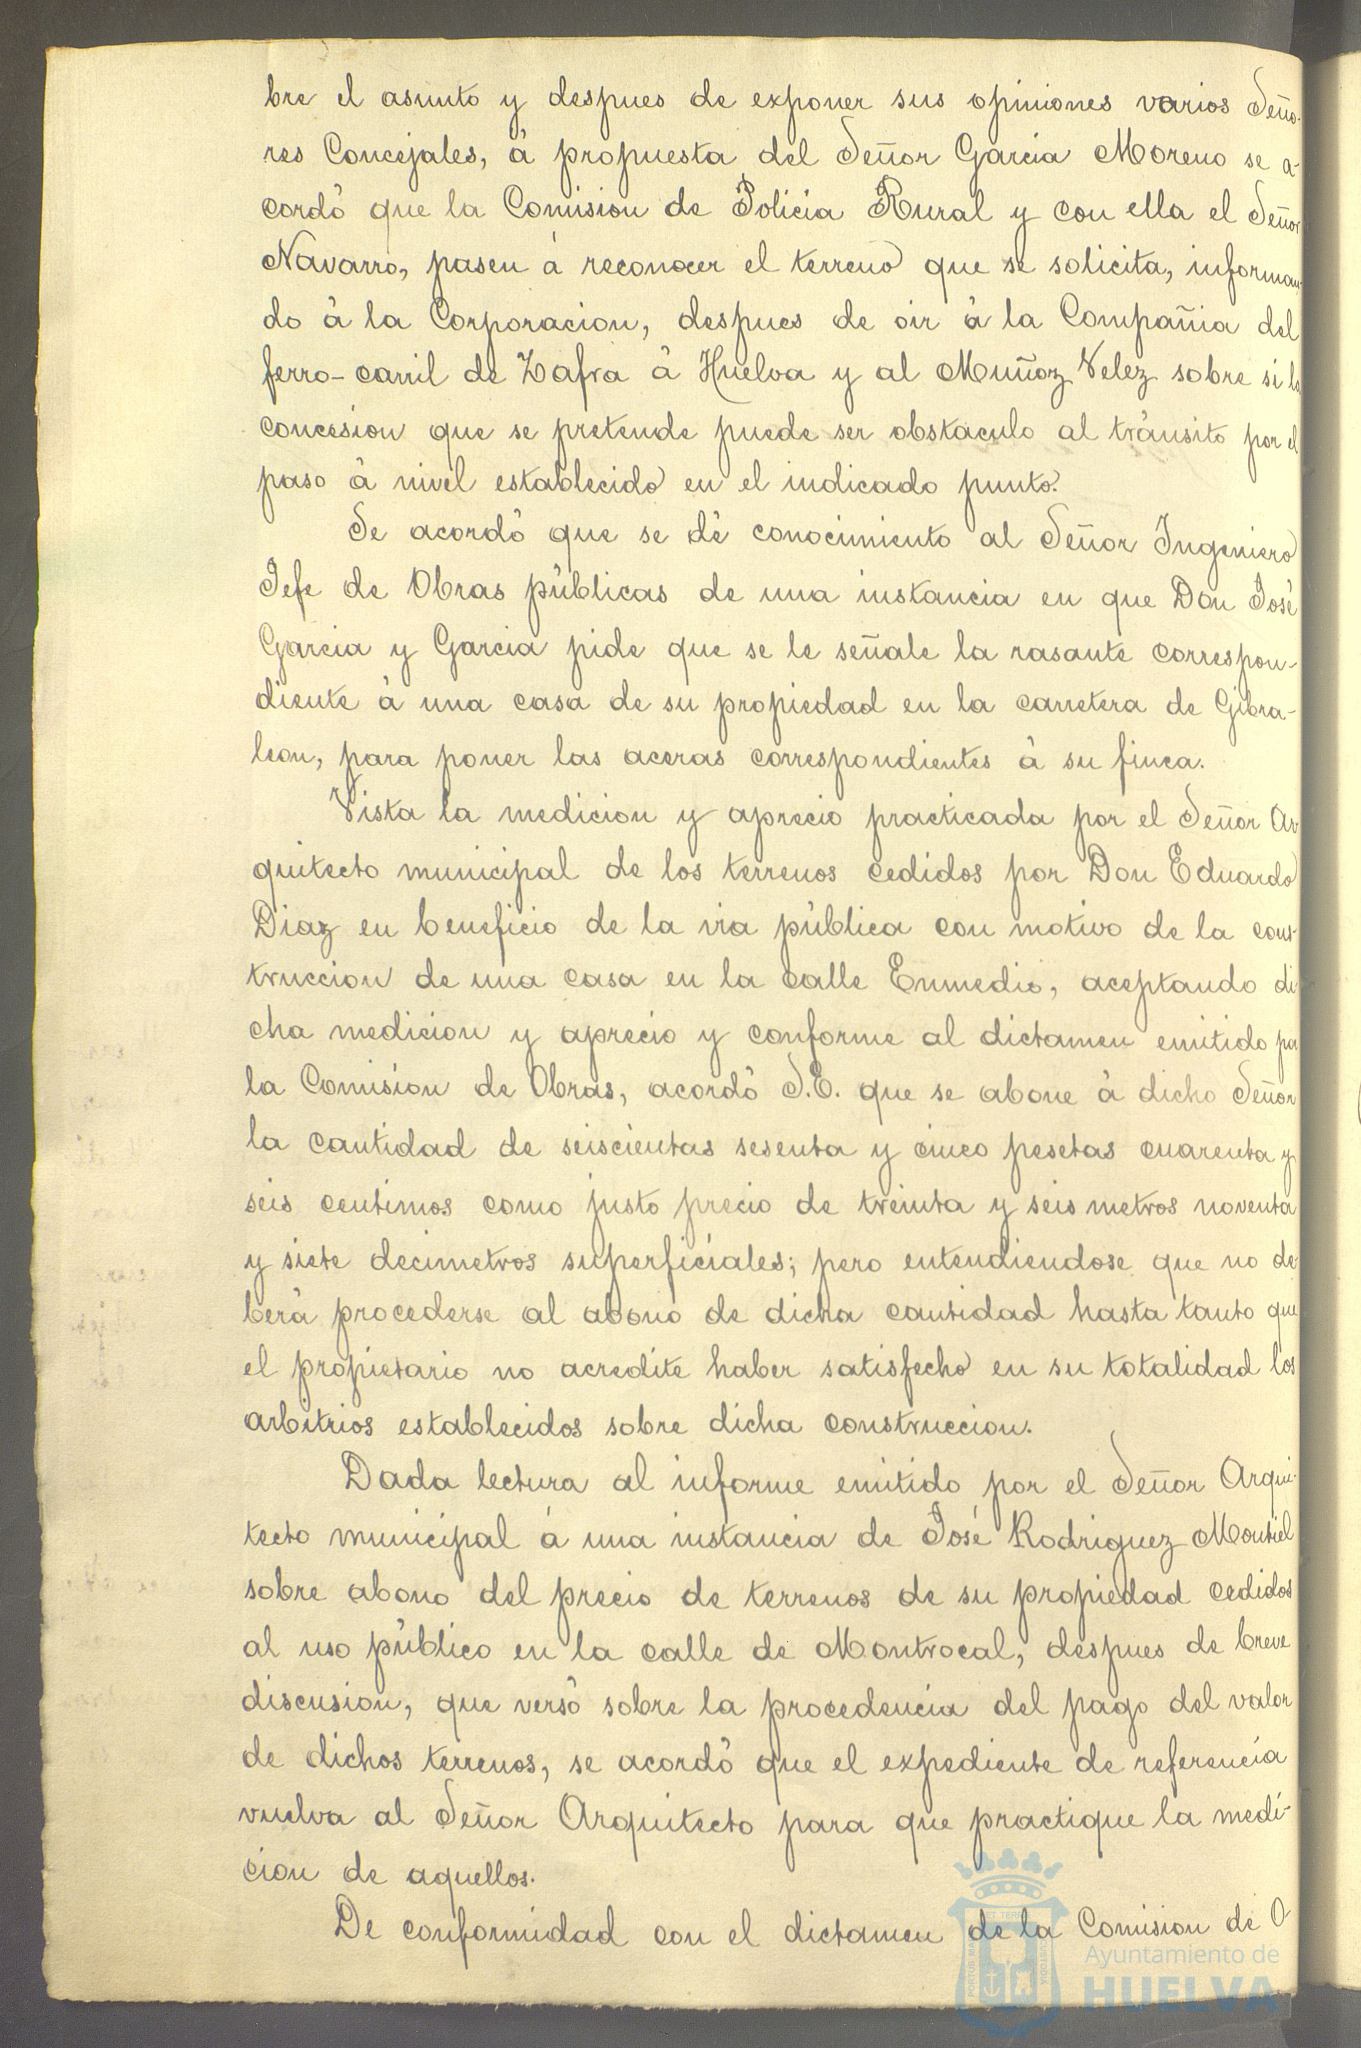 bre el asunto y despues de exponer sus opiniones varios Seño-
res Concejales, á propuesta del Señor Garcia Moreno se a-
cordó que la Comision de Policía Rural y con ella el Señor
Navarro, pasen á reconocer el terreno que se solicita, informan-
do á la Corporacion, despues de oir á la Compañia del
ferro-carril de Zafra á Huelva y al Muñoz Velez sobre si la
concesion que se pretende puede ser obstáculo al tránsito por el
paso á nivel establecido en el indicado punto.
Se acordó que se dé conocimiento al Señor Ingeniero
Jefe de Obras públicas de una instancia en que Don José
Garcia y Garcia pide que se le señale la rasante correspon-
diente á una casa de su propiedad en la carretera de Gibra-
leon, para poner las aceras correspondientes á su finca.
Vista la medicion y aprecio practicada por el Señor Ar
quitecto municipal de los terrenos cedidos por Don Eduardo
Diaz en beneficio de la via pública con motivo de la cons-
truccion de una casa en la calle Enmedio, aceptando di
cha medicion y aprecio y conforme al dictamen emitido por
la Comision de Obras, acordó S.E. que se abone á dicho Señor
la cantidad de seiscientas sesenta y cinco pesetas cuarenta y
seis centimos como justo precio de treinta y seis metros noventa
y siete decimetros superficiales; pero entendiendose que no de-
berá procederse al abono de dicha cantidad hasta tanto que
el propietario no acredite haber satisfecho en su totalidad los
arbitrios establecidos sobre dicha construccion.
Dada lectura al informe emitido por el Señor Arqui-
tecto municipal á una instancia de José Rodriguez Montiel
sobre abono del precio de terrenos de su propiedad cedidos
al uso público en la calle de Montrocal, despues de breve
discusion, que versó sobre la procedencia del pago del valor
de dichos terrenos, se acordó que el expediente de referencia
vuelva al Señor Arquitecto para que practique la medi-
cion de aquellos.
De conformidad con el dictamen de la Comision de O
Ayuntamiento de
HUELVA